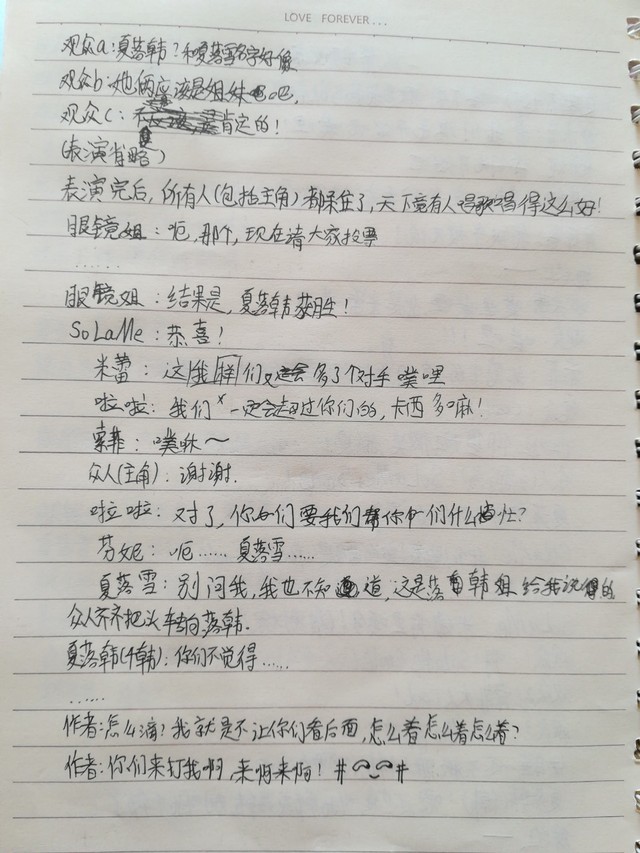 LOVE FOREVER...
观众a:夏落韩?和夏落雪名字好像
观众b:她俩应该是姐妹吧吧.
观众c:肯定的!
(表演省略)
表演完后,所有人(包括主角)都呆住了,天下竟有人唱歌唱得这么好!
眼镜姐:呃,那个,现在请大家投票
......
眼镜姐:结果是,夏落韩获胜!
SoLaMe:恭喜!
米蕾:这样我们又会多了个对手噗哩
啦啦:我们一定会超过你们的,卡西多嘛!
索菲:噗咻~
众人(主角):谢谢.
啦啦:对了,你们要我们帮你们什么忙?
芬妮:呃......夏落雪......
夏落雪:别问我,我也不知道,这是落韩姐给我说的
众人齐齐把头转向落韩.
夏落韩(千韩):你们不觉得......
......
作者:怎么滴?我就是不让你们看后面,怎么着怎么着怎么着?
作者:你们来打我啊,来啊来啊!#^_^#